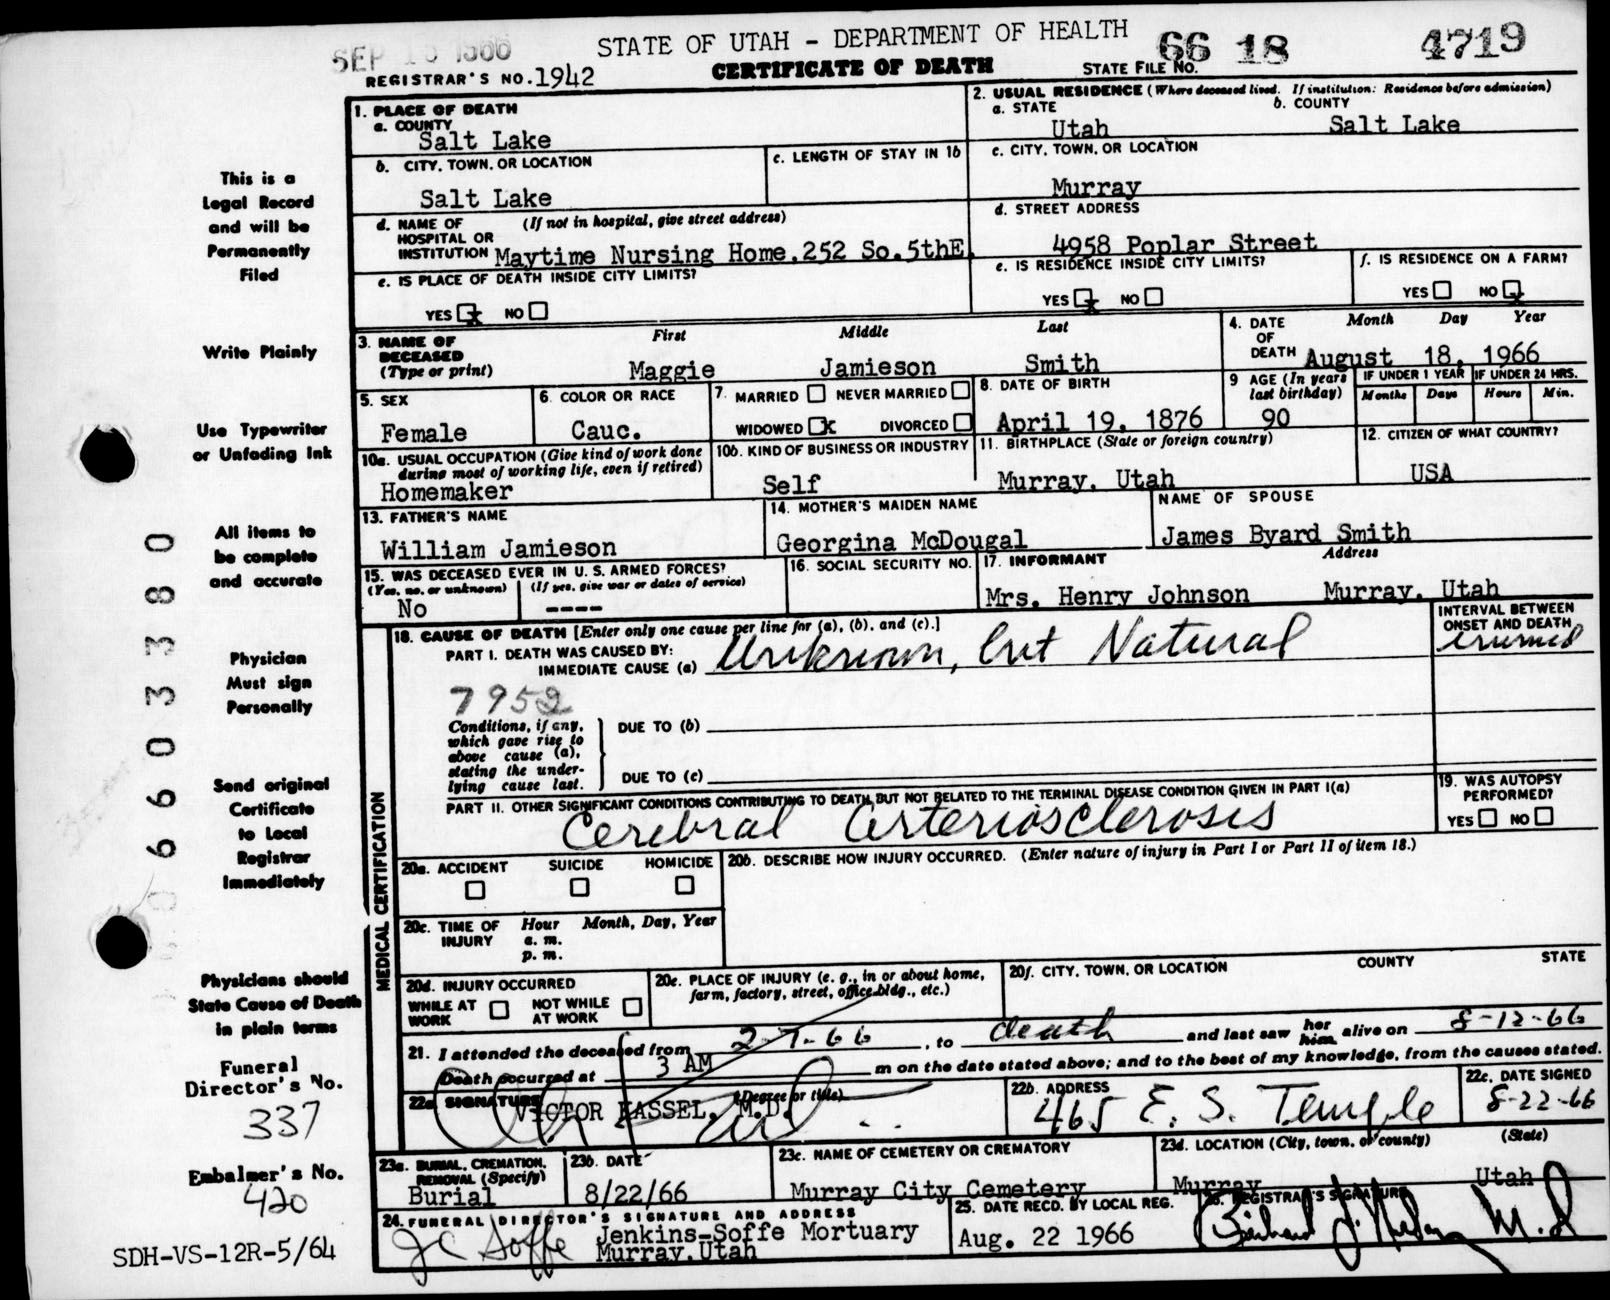 SEP 15 1966
STATE OF UTAH - DEPARTMENT OF HEALTH
66 18 4719
REGISTRAR'S NO. 1942
CERTIFICATE OF DEATH
STATE FILE NO.
1. PLACE OF DEATH
a. COUNTY
Salt Lake
2. USUAL RESIDENCE (Where deceased lived. If institution: Residence before admission)
a. STATE
Utah
b. COUNTY
Salt Lake
b. CITY, TOWN, OR LOCATION
Salt Lake
c. LENGTH OF STAY IN 1b
c. CITY, TOWN, OR LOCATION
Murray
d. NAME OF HOSPITAL OR INSTITUTION (If not in hospital, give street address)
Maytime Nursing Home, 252 So. 5thE.
d. STREET ADDRESS
4958 Poplar Street
e. IS PLACE OF DEATH INSIDE CITY LIMITS?
YES x NO
e. IS RESIDENCE INSIDE CITY LIMITS?
YES x NO
f. IS RESIDENCE ON A FARM?
YES NO x
3. NAME OF DECEASED (Type or print)
First Middle Last
Maggie Jamieson Smith
4. DATE OF DEATH
Month Day Year
August 18, 1966
5. SEX
Female
6. COLOR OR RACE
Cauc.
7. MARRIED NEVER MARRIED
WIDOWED x DIVORCED
8. DATE OF BIRTH
April 19, 1876
9 AGE (In years last birthday)
90
IF UNDER 1 YEAR
Months Days
IF UNDER 24 HRS.
Hours Min.
10a. USUAL OCCUPATION (Give kind of work done during most of working life, even if retired)
Homemaker
10b. KIND OF BUSINESS OR INDUSTRY
Self
11. BIRTHPLACE (State or foreign country)
Murray, Utah
12. CITIZEN OF WHAT COUNTRY?
USA
13. FATHER'S NAME
William Jamieson
14. MOTHER'S MAIDEN NAME
Georgina McDougal
NAME OF SPOUSE
James Byard Smith
15. WAS DECEASED EVER IN U. S. ARMED FORCES?
(Yes, no, or unknown) (If yes, give war or dates of service)
No ----
16. SOCIAL SECURITY NO.
17. INFORMANT Address
Mrs. Henry Johnson Murray, Utah
MEDICAL CERTIFICATION
18. CAUSE OF DEATH [Enter only one cause per line for (a), (b), and (c).]
PART I. DEATH WAS CAUSED BY:
IMMEDIATE CAUSE (a) Unknown, but Natural
INTERVAL BETWEEN ONSET AND DEATH
7952
Conditions, if any, which gave rise to above cause (a), stating the underlying cause last.
DUE TO (b)
DUE TO (c)
PART II. OTHER SIGNIFICANT CONDITIONS CONTRIBUTING TO DEATH BUT NOT RELATED TO THE TERMINAL DISEASE CONDITION GIVEN IN PART I(a)
Cerebral Arteriosclerosis
19. WAS AUTOPSY PERFORMED?
YES NO
20a. ACCIDENT SUICIDE HOMICIDE
20b. DESCRIBE HOW INJURY OCCURRED. (Enter nature of injury in Part I or Part II of item 18.)
20c. TIME OF INJURY
Hour Month, Day, Year
a. m.
p. m.
20d. INJURY OCCURRED
WHILE AT WORK NOT WHILE AT WORK
20e. PLACE OF INJURY (e. g., in or about home, farm, factory, street, office bldg., etc.)
20f. CITY, TOWN, OR LOCATION COUNTY STATE
21. I attended the deceased from 2-7-66, to death and last saw her him alive on 8-12-66
Death occurred at 3 AM m on the date stated above; and to the best of my knowledge, from the causes stated.
22a SIGNATURE (Degree or title)
VICTOR KASSEL, M.D.
22b. ADDRESS
465 E. S. Temple
22c. DATE SIGNED
8-22-66
23a. BURIAL, CREMATION, REMOVAL (Specify)
Burial
23b. DATE
8/22/66
23c. NAME OF CEMETERY OR CREMATORY
Murray City Cemetery
23d. LOCATION (City, town, or county) (State)
Murray Utah
24. FUNERAL DIRECTOR'S SIGNATURE AND ADDRESS
JC Soffe
Jenkins-Soffe Mortuary
Murray, Utah
25. DATE RECD. BY LOCAL REG.
Aug. 22 1966
26. REGISTRAR'S SIGNATURE
M.D
This is a
Legal Record
and will be
Permanently
Filed
Write Plainly
Use Typewriter
or Unfading Ink
All items to
be complete
and accurate
Physician
Must sign
Personally
Send original
Certificate
to Local
Registrar
Immediately
Physicians should
State Cause of Death
in plain terms
Funeral
Director's No.
337
Embalmer's No.
420
SDH-VS-12R-5/64
6603380